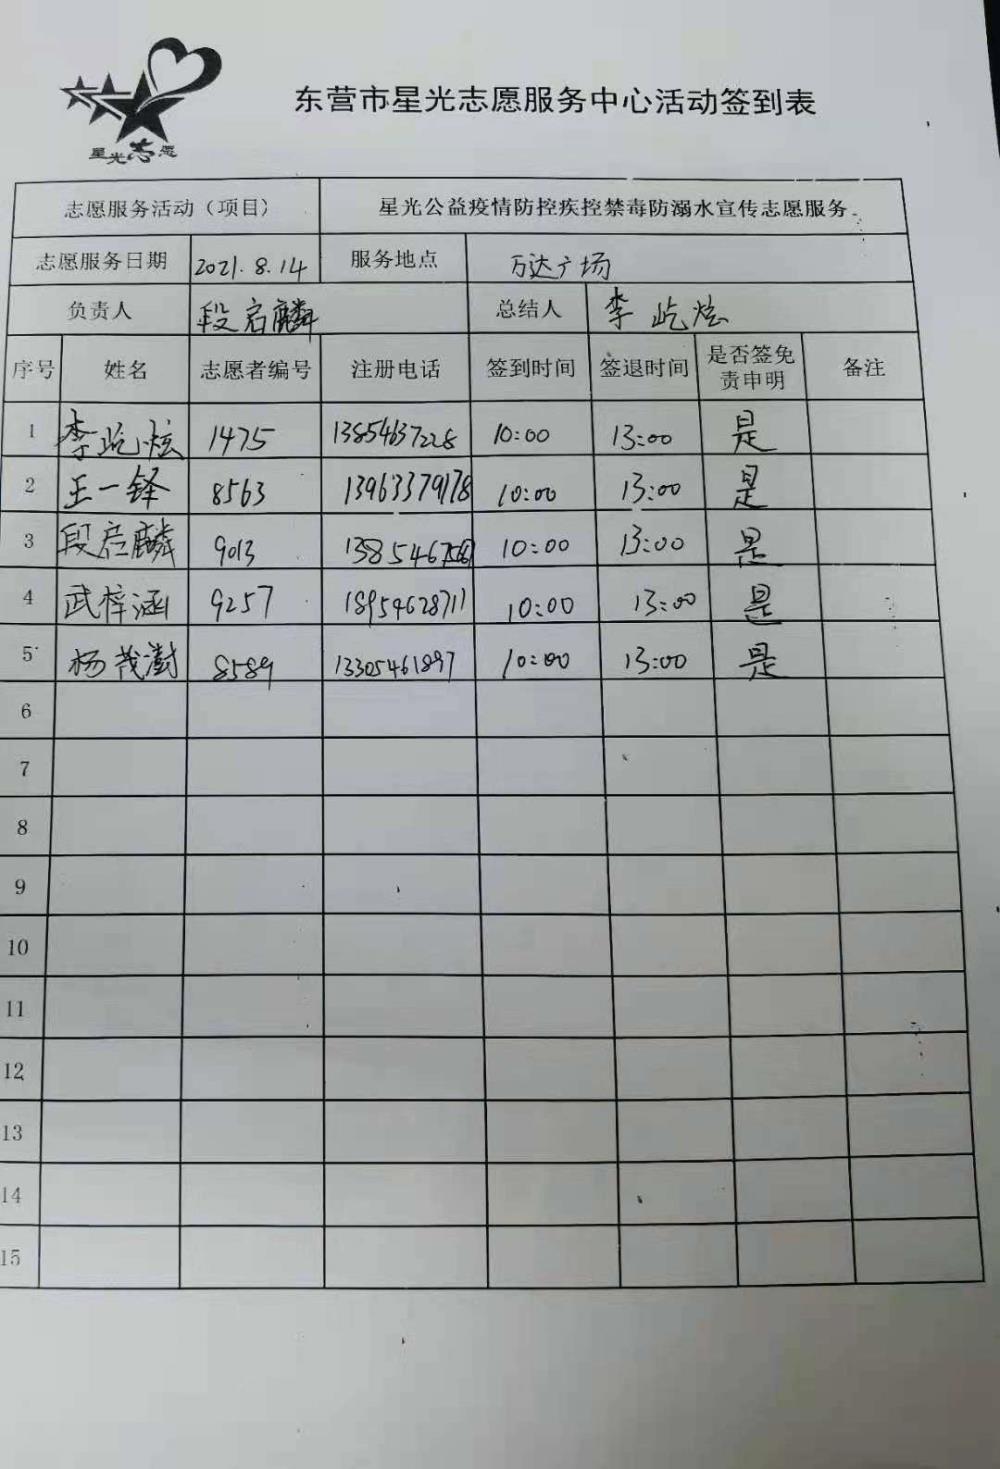 星光志愿
东营市星光志愿服务中心活动签到表
志愿服务活动（项目） 星光公益疫情防控疾控禁毒防溺水宣传志愿服务
志愿服务日期 2021.8.14 服务地点 万达广场
负责人 段启麟 总结人 李屹炫
序号 姓名 志愿者编号 注册电话 签到时间 签退时间 是否签免责申明 备注
1 李屹炫 1475 13854637228 10:00 13:00 是
2 王一铎 8563 13963379178 10:00 13:00 是
3 段启麟 9013 10:00 13:00 是
4 武梓涵 9257 18954628711 10:00 13:00 是
5 杨茂澍 8589 13305461897 10:00 13:00 是
6
7
8
9
10
11
12
13
14
15